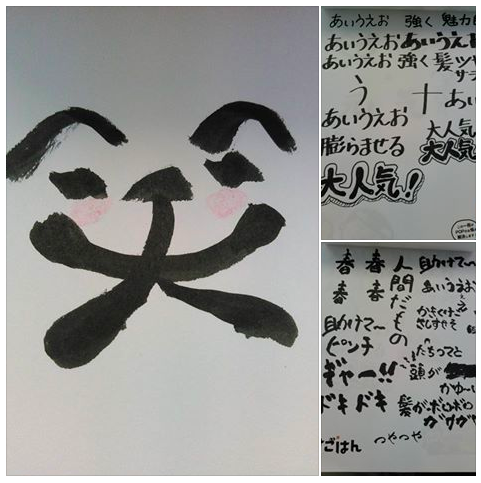 笑
あいうえお 強く 魅力
あいうえお あいうえお
あいうえお 強く 髪 ツヤ
サラ
う 十 あい
あいうえお 大人気
膨らませる 大人気
大人気!
春 春 人間だもの 助けて〜
春 春 あいうえお
かきくけこ
さしすせそ
助けて〜
ピンチ たちつてと
ギャー!! 頭が
かゆ〜い
ドキドキ 髪がボロボロ
ガサガサ
ごはん つやつや